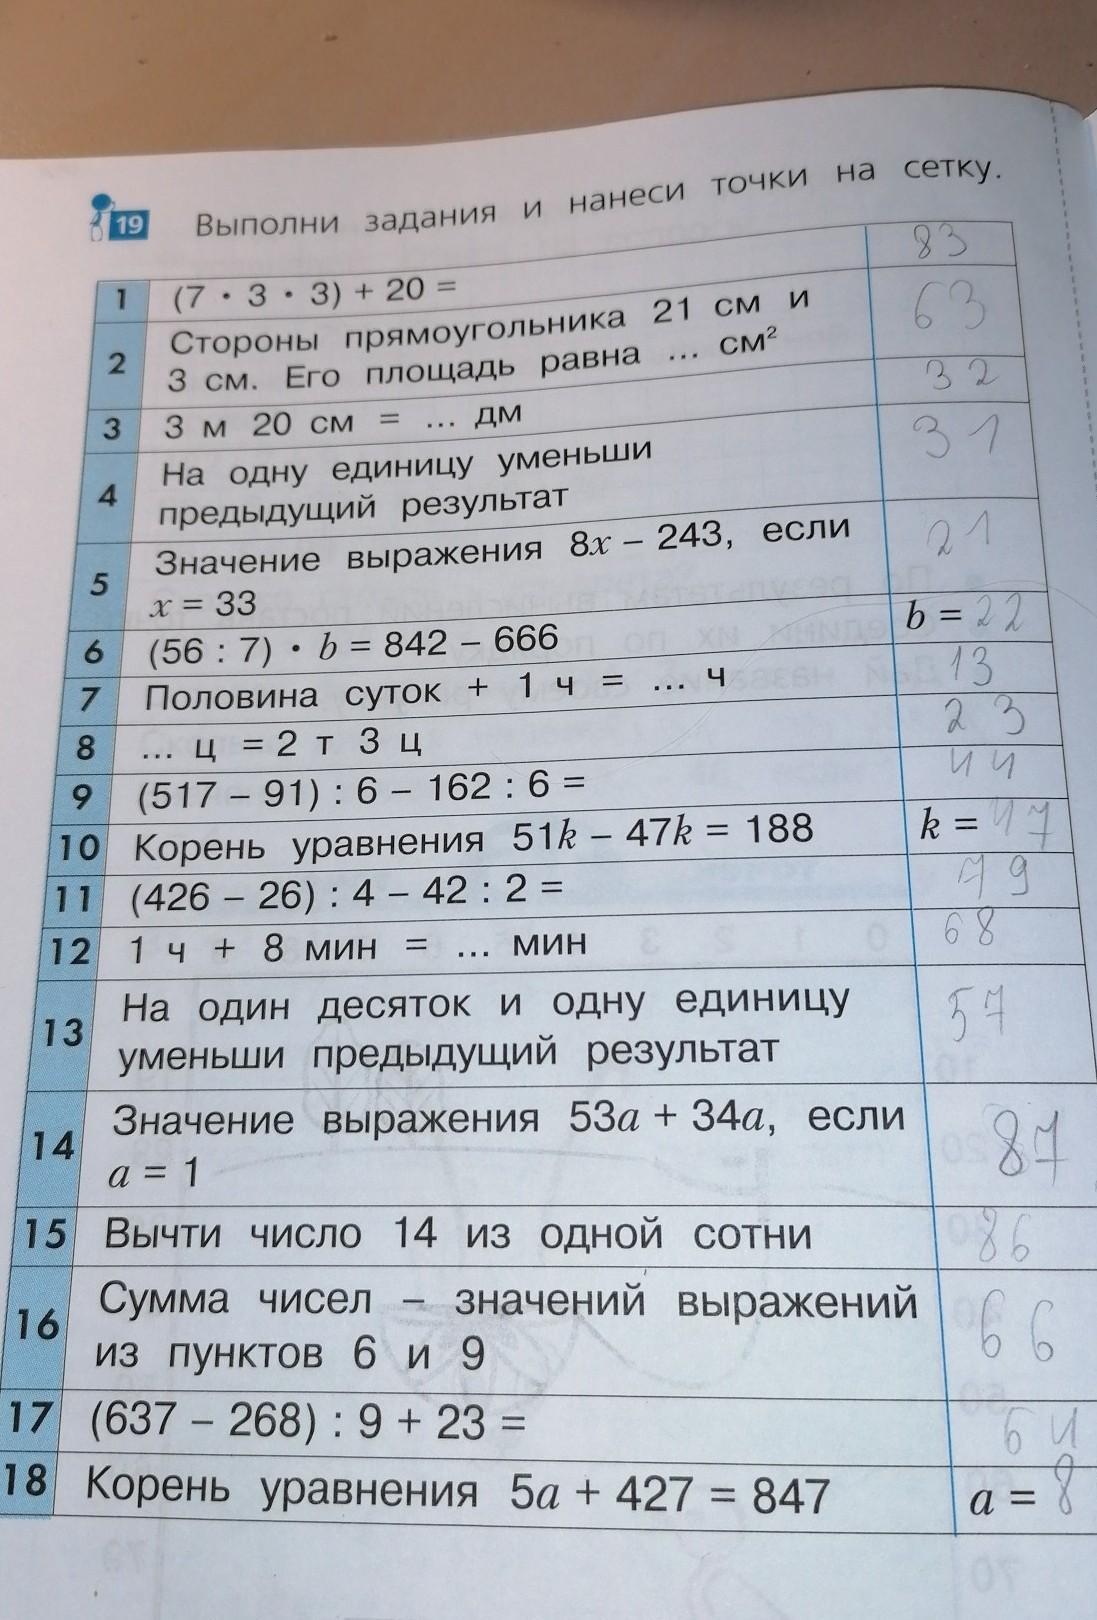 19 Выполни задания и нанеси точки на сетку.
1 (7 · 3 · 3) + 20 = 83
2 Стороны прямоугольника 21 см и
3 см. Его площадь равна ... см² 63
3 3 м 20 см = ... дм 32
4 На одну единицу уменьши
предыдущий результат 31
5 Значение выражения 8x – 243, если
x = 33 21
6 (56 : 7) · b = 842 – 666 b = 22
7 Половина суток + 1 ч = ... ч 13
8 ... ц = 2 т 3 ц 23
9 (517 – 91) : 6 – 162 : 6 = 44
10 Корень уравнения 51k – 47k = 188 k = 47
11 (426 – 26) : 4 – 42 : 2 = 79
12 1 ч + 8 мин = ... мин 68
13 На один десяток и одну единицу
уменьши предыдущий результат 57
14 Значение выражения 53a + 34a, если
a = 1 87
15 Вычти число 14 из одной сотни 86
16 Сумма чисел – значений выражений
из пунктов 6 и 9 66
17 (637 – 268) : 9 + 23 = 64
18 Корень уравнения 5a + 427 = 847 a = 8